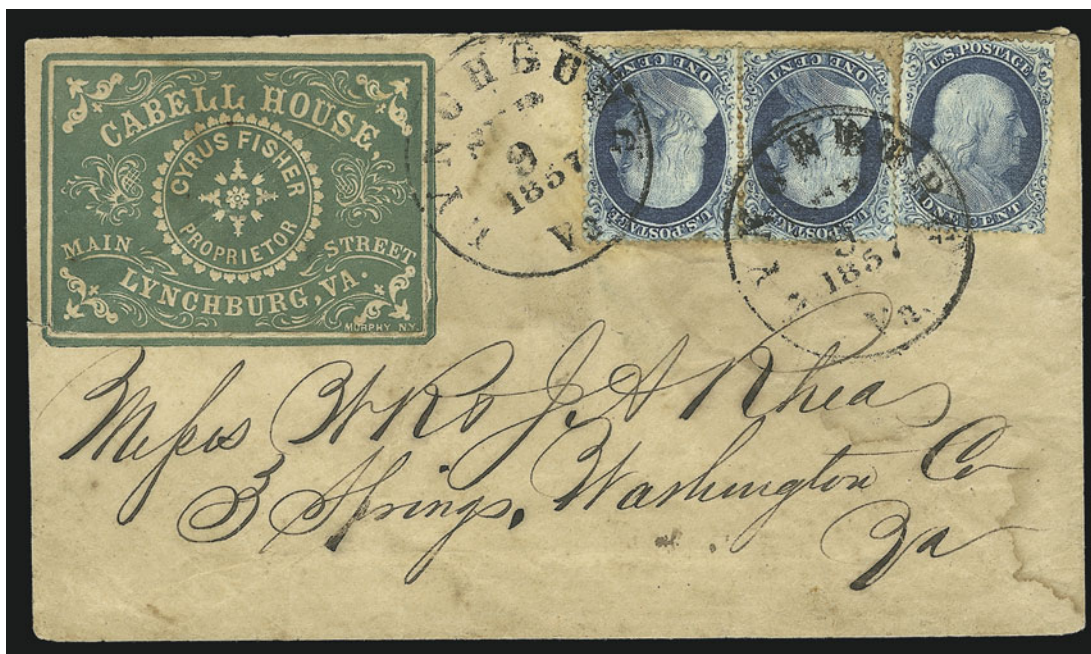 CABELL HOUSE,
CYRUS FISHER
PROPRIETOR
MAIN STREET
LYNCHBURG, VA.
MURPHY N.Y.
LYNCHBU
9
1857
Va
ONE CENT
U.S. POSTAGE
ONE CENT
U.S. POSTAGE
U.S. POSTAGE
ONE CENT
1857
Va.
Messrs W R & J. A Rhea
3 Springs, Washington Co
Va